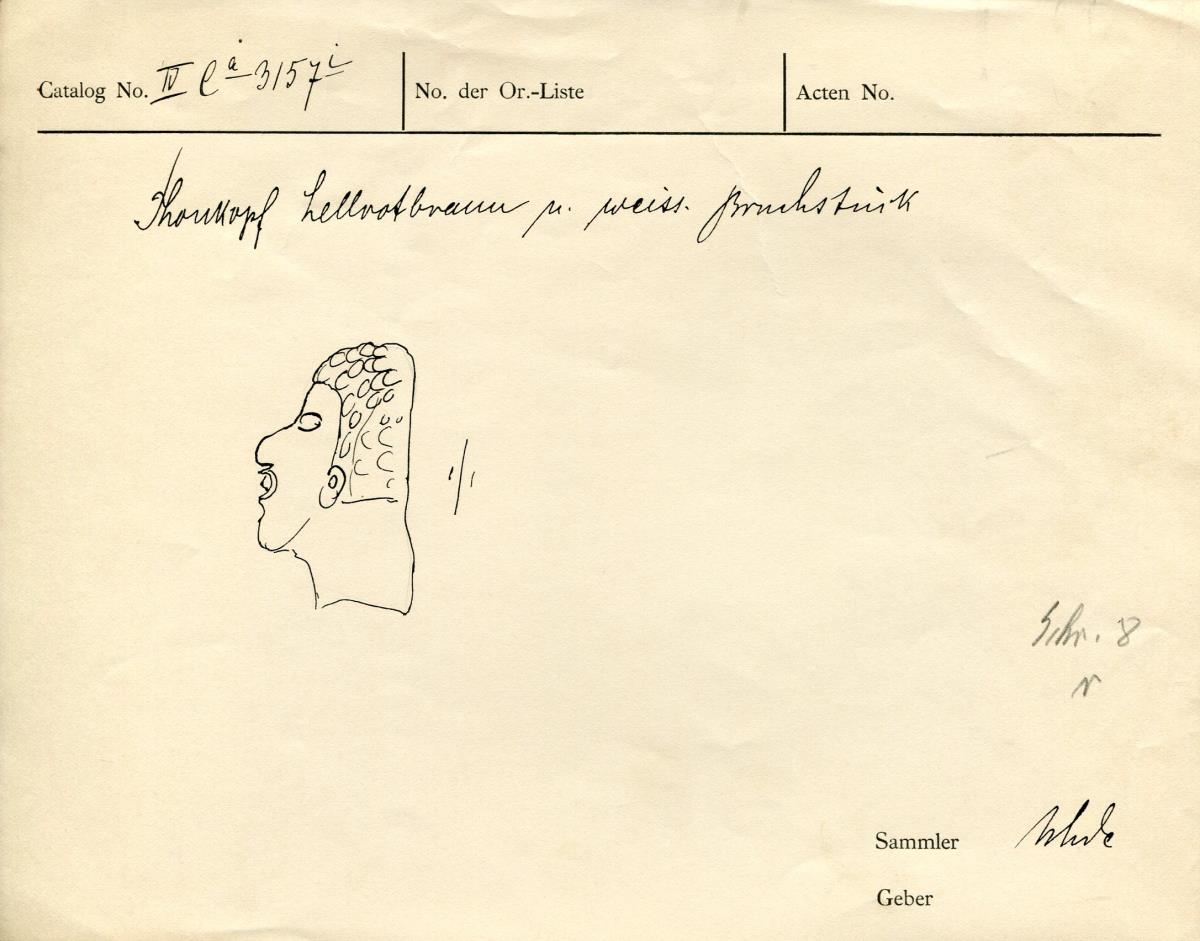 Catalog No. IV Ca 3157 i No. der Or.-Liste Acten No.
Thonkopf hellrotbraun u. weiss. Bruchstück
1/1
Schr. 8
r
Sammler Uhde
Geber